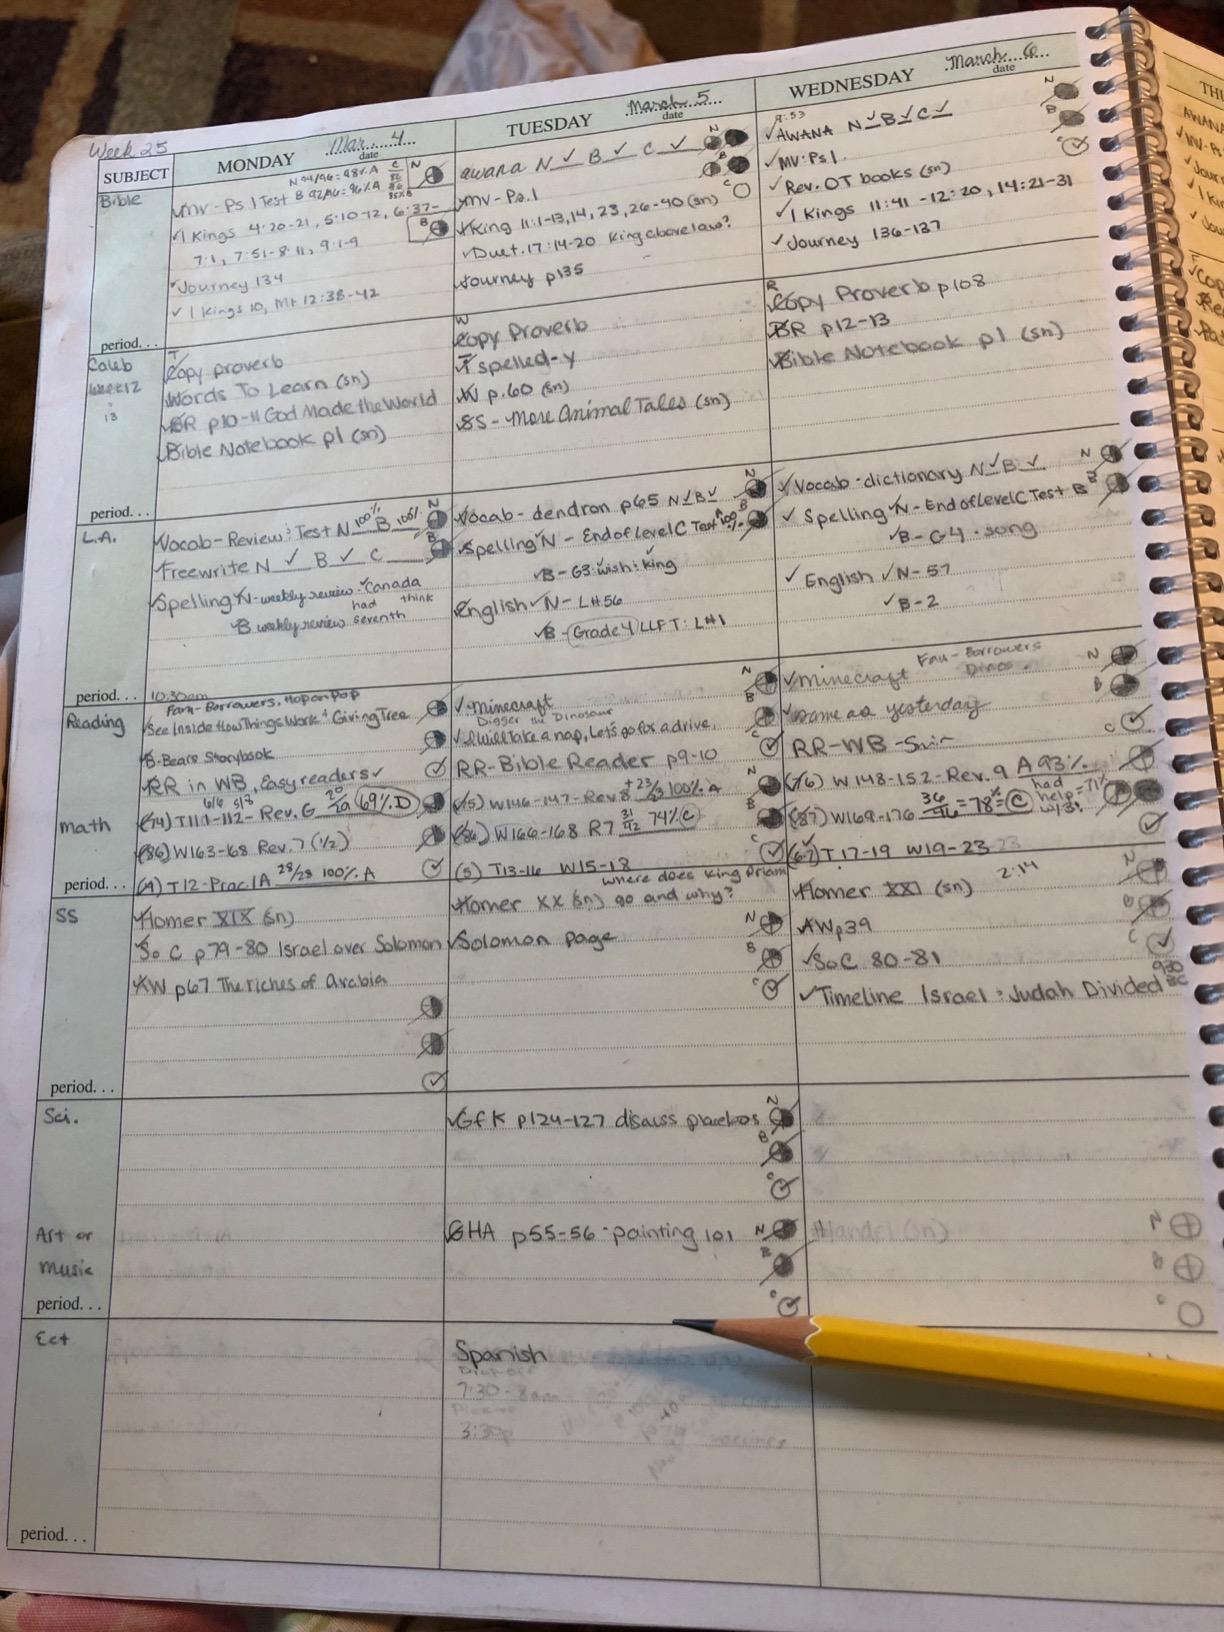 Week 25
SUBJECT
MONDAY Mar. 4
date
TUESDAY March 5
date
WEDNESDAY March 6
date
Bible
N 94/96 = 98% A
MV - Ps 1 Test B 92/96 = 96% A
1 Kings 4:20-21, 5:10-12, 6:37-
7:1, 7:51-8:11, 9:1-9
Journey 134
1 Kings 10, Mt 12:38-42
awana N ✓ B ✓ C ✓
MV - Ps. 1
1 King 11:1-13, 14, 23, 26-40 (sn)
Duet. 17:14-20 King above law?
Journey p135
9:53
AWANA N ✓ B ✓ C ✓
MV: Ps 1.
Rev. OT books (sn)
1 Kings 11:41 - 12:20, 14:21-31
Journey 136-137
period. . .
Caleb
week 12
13
T
Copy proverb
Words To Learn (sn)
BR p10-11 God Made the World
Bible Notebook p1 (sn)
W
Copy Proverb
F spelled -y
W p.60 (sn)
SS - More Animal Tales (sn)
R
Copy Proverb p108
BR p12-13
Bible Notebook p1 (sn)
period. . .
L.A.
Vocab - Review: Test N 100% B 106%
Freewrite N ✓ B ✓ C
Spelling N - weekly review - Canada
had think
B weekly review seventh
Vocab - dendron p65 N ✓ B ✓
Spelling N - End of Level C Test 100%
B - G3: wish: king
English N - LH 56
B - Grade 4 LLFT: LH 1
Vocab - dictionary N ✓ B ✓
Spelling N - End of Level C Test B
B - G4 - song
English N - 57
B - 2
period. . .
10:30am
Reading
Fam - Borrowers, Hop on Pop
See Inside How Things Work + Giving Tree
B. Bears Storybook
RR in WB, Easy readers ✓
Minecraft
Digger the Dinosaur
I will take a nap, Let's go for a drive,
RR - Bible Reader p9-10
Minecraft Fam - Borrowers
Dinos
same as yesterday
RR - WB -
math
(74) T111-112 - Rev. G 20/29 69% D
(86) W163-68 Rev. 7 (1/2)
(4) T12 - Prac. 1A 28/28 100% A
(75) W146-147 - Rev 8 +23/23 100% A
(86) W166-168 R7 31/42 74% C
(5) T13-16 W15-18
(76) W148-152 - Rev. 9 A 93%
(87) W169-176 36/46 = 78% = C had help = 71% w/3?
(6-7) T17-19 W19-23
period. . .
SS
Homer XIX (sn)
SoC p79-80 Israel over Solomon
AW p67 The riches of Arabia
where does King Priam
Homer XX (sn) go and why?
Solomon page
2:14
Homer XXI (sn)
AW p39
SoC 80-81
Timeline Israel : Judah Divided 930 BC
period. . .
Sci.
GfK p124-127 discuss placebos
Art or
music
GHA p55-56 - painting 101
Handel (sn)
period. . .
Ect
Spanish
7:30 - 8am
3:30p
vaccines
period. . .
THU
AWANA